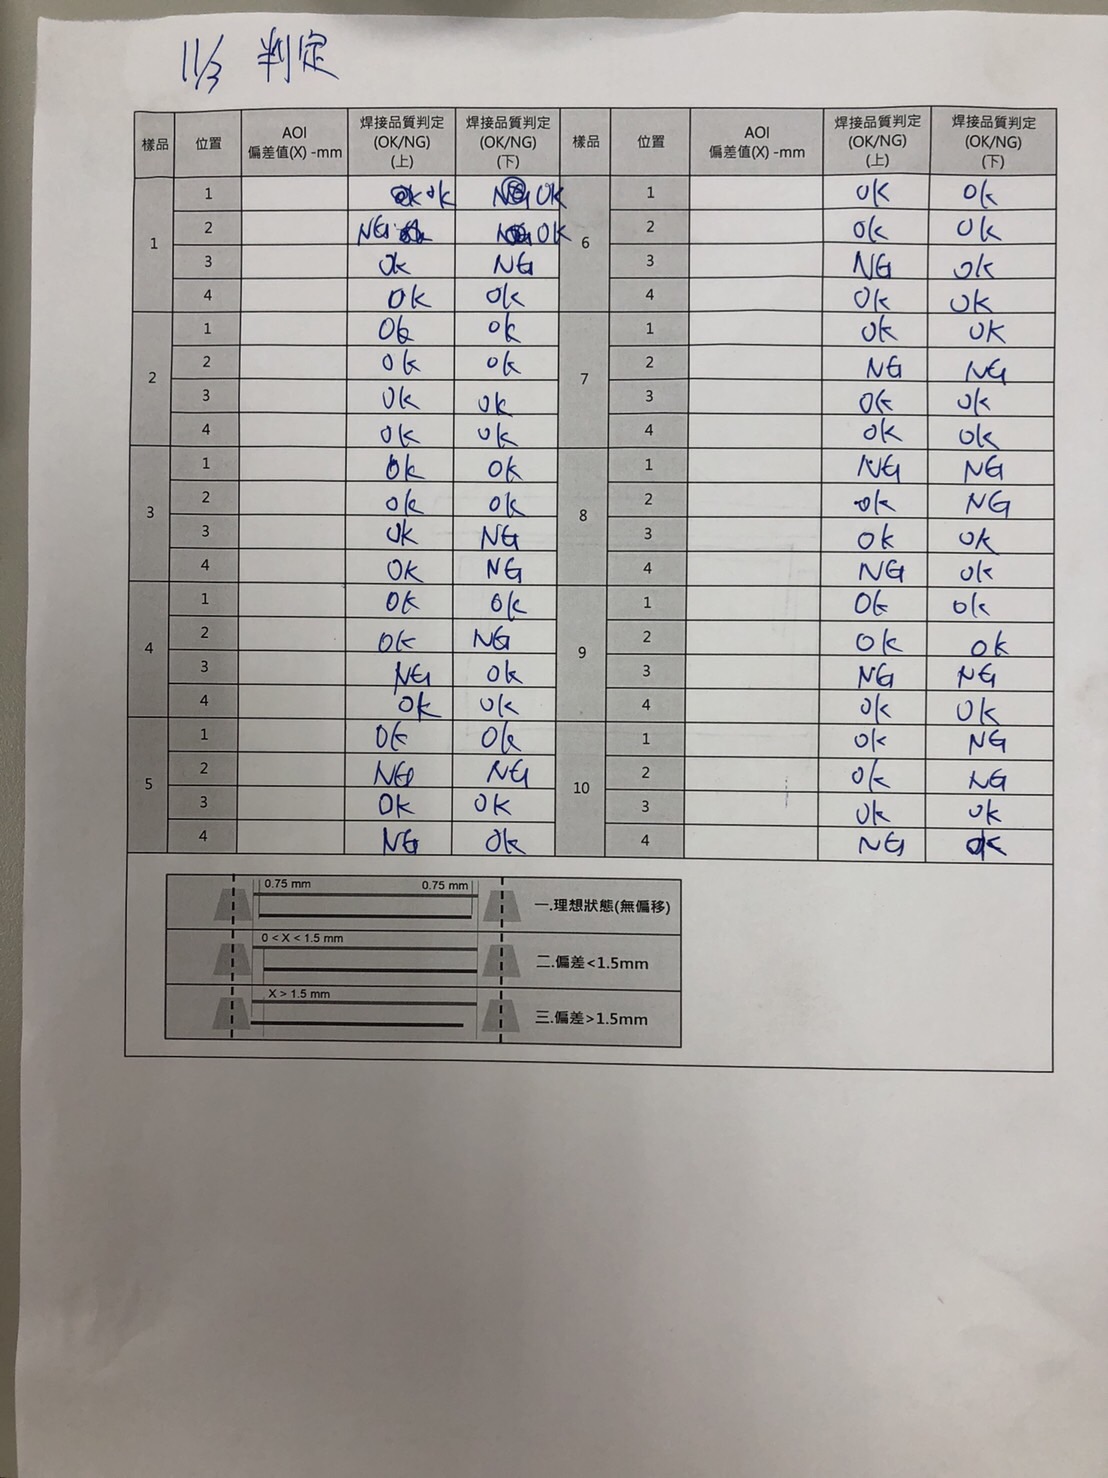 11/3 判定
樣品 位置 AOI 偏差值(X) -mm 焊接品質判定 (OK/NG) (上) 焊接品質判定 (OK/NG) (下) 樣品 位置 AOI 偏差值(X) -mm 焊接品質判定 (OK/NG) (上) 焊接品質判定 (OK/NG) (下)
1 1 OK OK 6 1 OK OK
2 NG OK 2 OK OK
3 OK NG 3 NG OK
4 OK OK 4 OK OK
2 1 OK OK 7 1 OK OK
2 OK OK 2 NG NG
3 OK OK 3 OK OK
4 OK OK 4 OK OK
3 1 OK OK 8 1 NG NG
2 OK OK 2 OK NG
3 OK NG 3 OK OK
4 OK NG 4 NG OK
4 1 OK OK 9 1 OK OK
2 OK NG 2 OK OK
3 NG OK 3 NG NG
4 OK OK 4 OK OK
5 1 OK OK 10 1 OK NG
2 NG NG 2 OK NG
3 OK OK 3 OK OK
4 NG OK 4 NG OK
0.75 mm 0.75 mm
一.理想狀態(無偏移)
0 < X < 1.5 mm
二.偏差<1.5mm
X > 1.5 mm
三.偏差>1.5mm